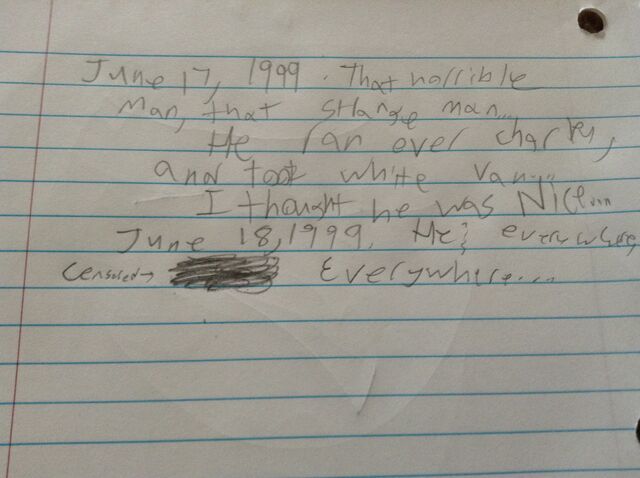 June 17, 1999. That horrible
Man, that strange man...
He ran over charley,
and took white van....
I thought he was Nice....
June 18, 1999. He's everywhere,
Censored→ Everywhere....